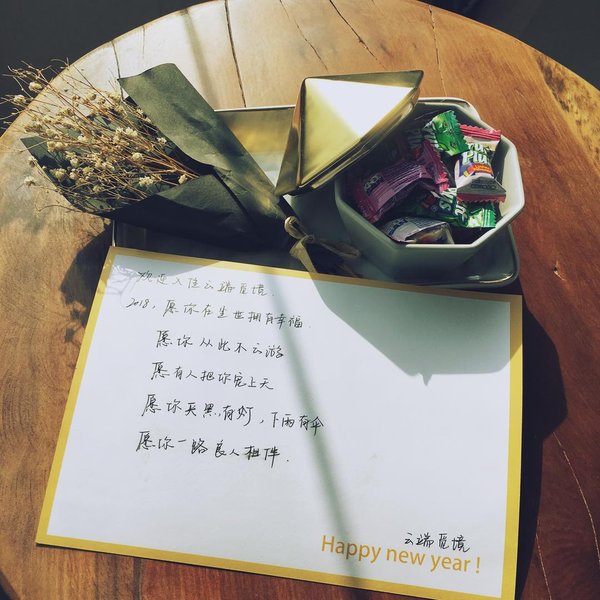 欢迎入住云端觅境.
2018，愿你在尘世拥有幸福.
愿你从此不云游
愿有人把你宠上天
愿你天黑有灯，下雨有伞
愿你一路良人相伴.
云端觅境
Happy new year !
Plus